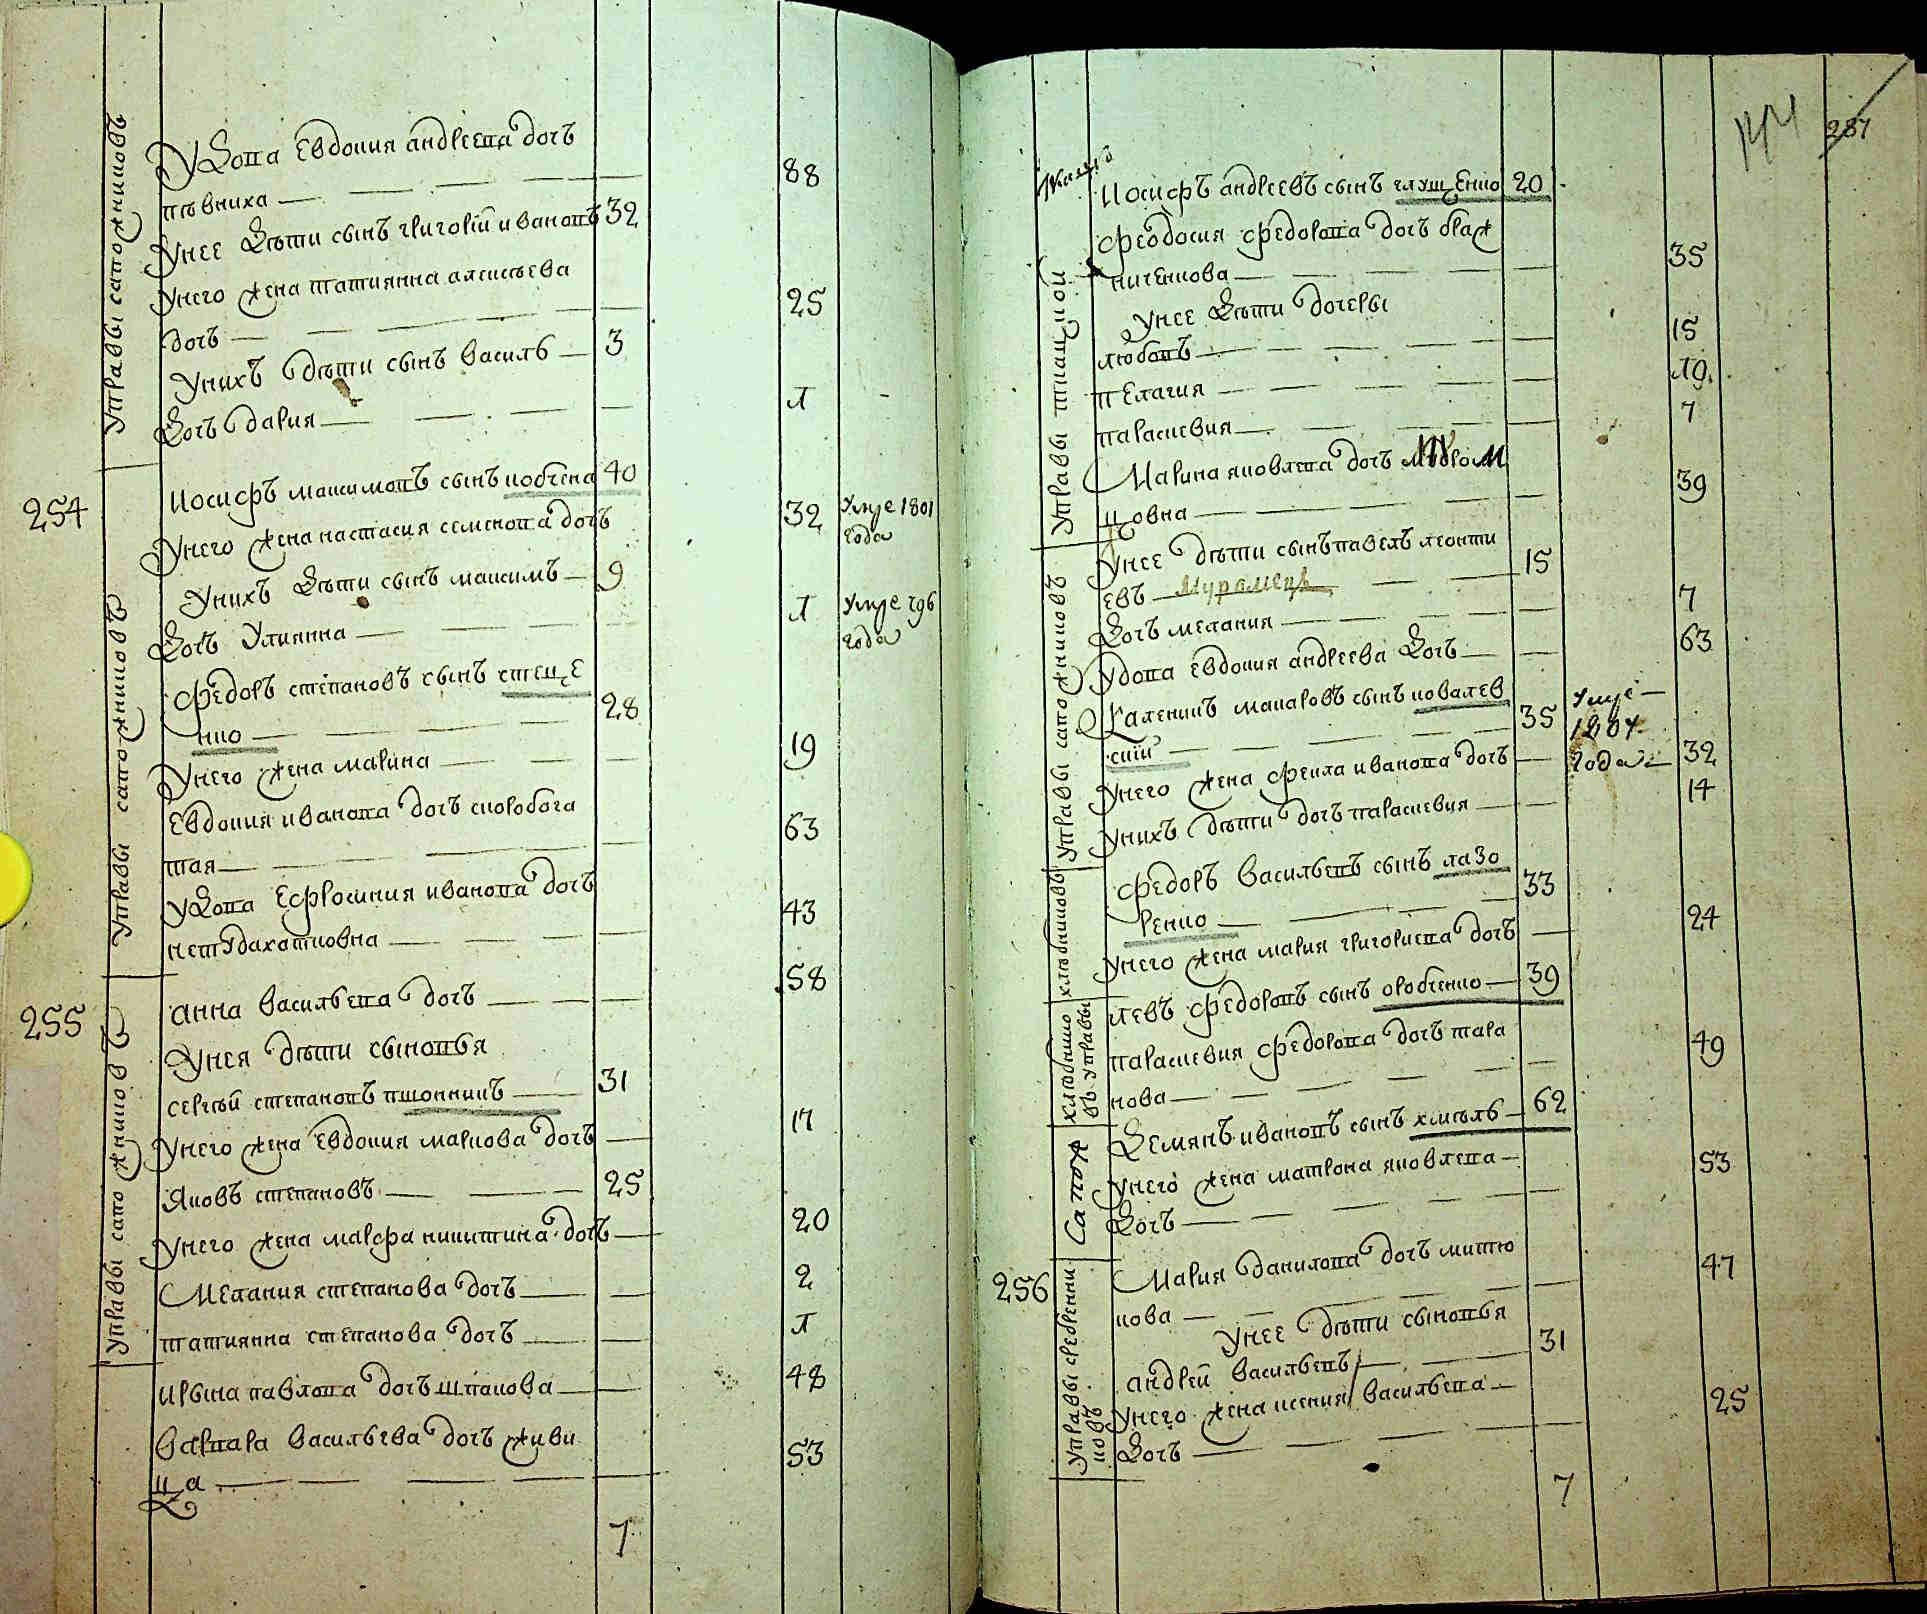 Управы сапожниковъ
Удова Евдокия андреева дочъ
пѣвниха 88
Унее дѣти сынъ григорій ивановъ 32
Унего жена татиянна алексѣева
дочъ 25
Унихъ дѣти сынъ василь 3
дочъ дария Л
254
Управы сапожниковъ
Иосифъ максимовъ сынъ кобчена 40
Унего жена настасия семенова дочъ 32
Умре 1801
года
Унихъ дѣти сынъ максимъ 9
дочъ Улиянна Л
Умре 796
года
Федоръ степановъ сынъ стеце
нко 28
Унего жена марина 19
Евдокия иванова дочъ скоробога
тая 63
Удова Ефросиния иванова дочъ
43
255
Управы сапожниковъ
анна васильева дочъ 58
Унея дѣти сыновья
сергѣй степановъ пшонникъ 31
Унего жена Евдокия маркова дочъ 17
Яковъ степановъ 25
Унего жена марфа никитина дочъ 20
Мелания степанова дочъ 2
татиянна степанова дочъ Л
Ирына павлова дочъ шпакова 48
Варвара васильева дочъ живи
ца 53
7
287
Управы ткацкой
Иосифъ андреевъ сынъ глущенко 20
Феодосия федорова дочъ браж
ниченкова 35
Унее дѣти дочеры
любовъ 15
пелагия 19
параскевия 7
Марина яковлева дочъ
цовна 39
Управы сапожниковъ
Унее дѣти сынъ павелъ леонти
евъ Мурамецъ 15
дочъ мелания 7
Удова евдокия андреева дочъ 63
Каленикъ макаровъ сынъ ковалев
скій 35
Умре
1804
года
Унего жена фекла иванова дочъ 32
Унихъ дѣти дочъ параскевия 14
хлѣбниковъ
Федоръ васильевъ сынъ лазо
ренко 33
Унего жена мария григориева дочъ 24
хлѣбнико
въ управы
левъ федоровъ сынъ оробченко 39
параскевия федорова дочъ тара
нова 49
Сапож
Демянъ ивановъ сынъ хмѣль 62
Унего жена матрона яковлева
дочъ 53
256
Управы сребренни
ковъ
Мария данилова дочъ митю
кова 47
Унее дѣти сыновья
андрей васильевъ 31
Унего жена ксения васильева
дочъ 25
7